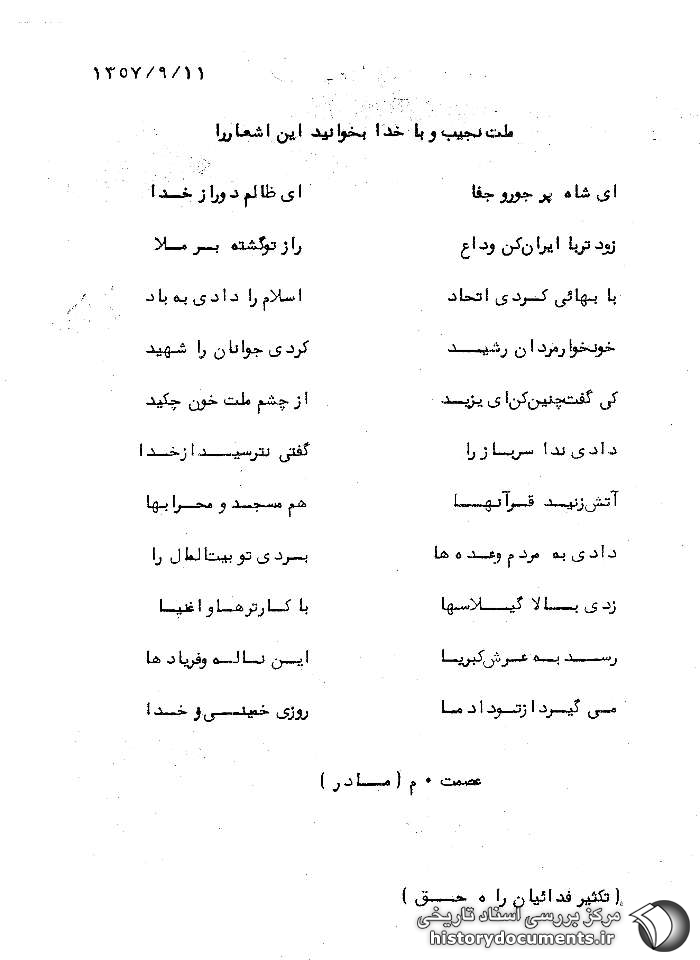 ۱۳۵۷/۹/۱۱
ملت نجیب و با خدا بخوانید این اشعاررا
ای شاه پر جورو جفا ای ظالم دوراز خدا
زود تربا ایران کن وداع راز توگشته بر ملا
با بهائی کردی اتحاد اسلام را دادی به باد
خونخوارمردان رشید کردی جوانان را شهید
کی گفت چنین کن ای یزید از چشم ملت خون چکید
دادی ندا سرباز را گفتی نترسید ازخدا
آتش زنید قرآنها هم مسجد و محرابها
دادی به مردم وعده ها بردی تو بیت المال را
زدی بالا گیلاسها با کارترها و اغنیا
رسد به عرش کبریا این ناله وفریاد ها
می گیرد ازتو داد ما روزی خمینی و خدا
عصمت ۰ م ( مادر )
( تکثیر فدائیان راه حق )
مرکز بررسی اسناد تاریخی
historydocuments.ir